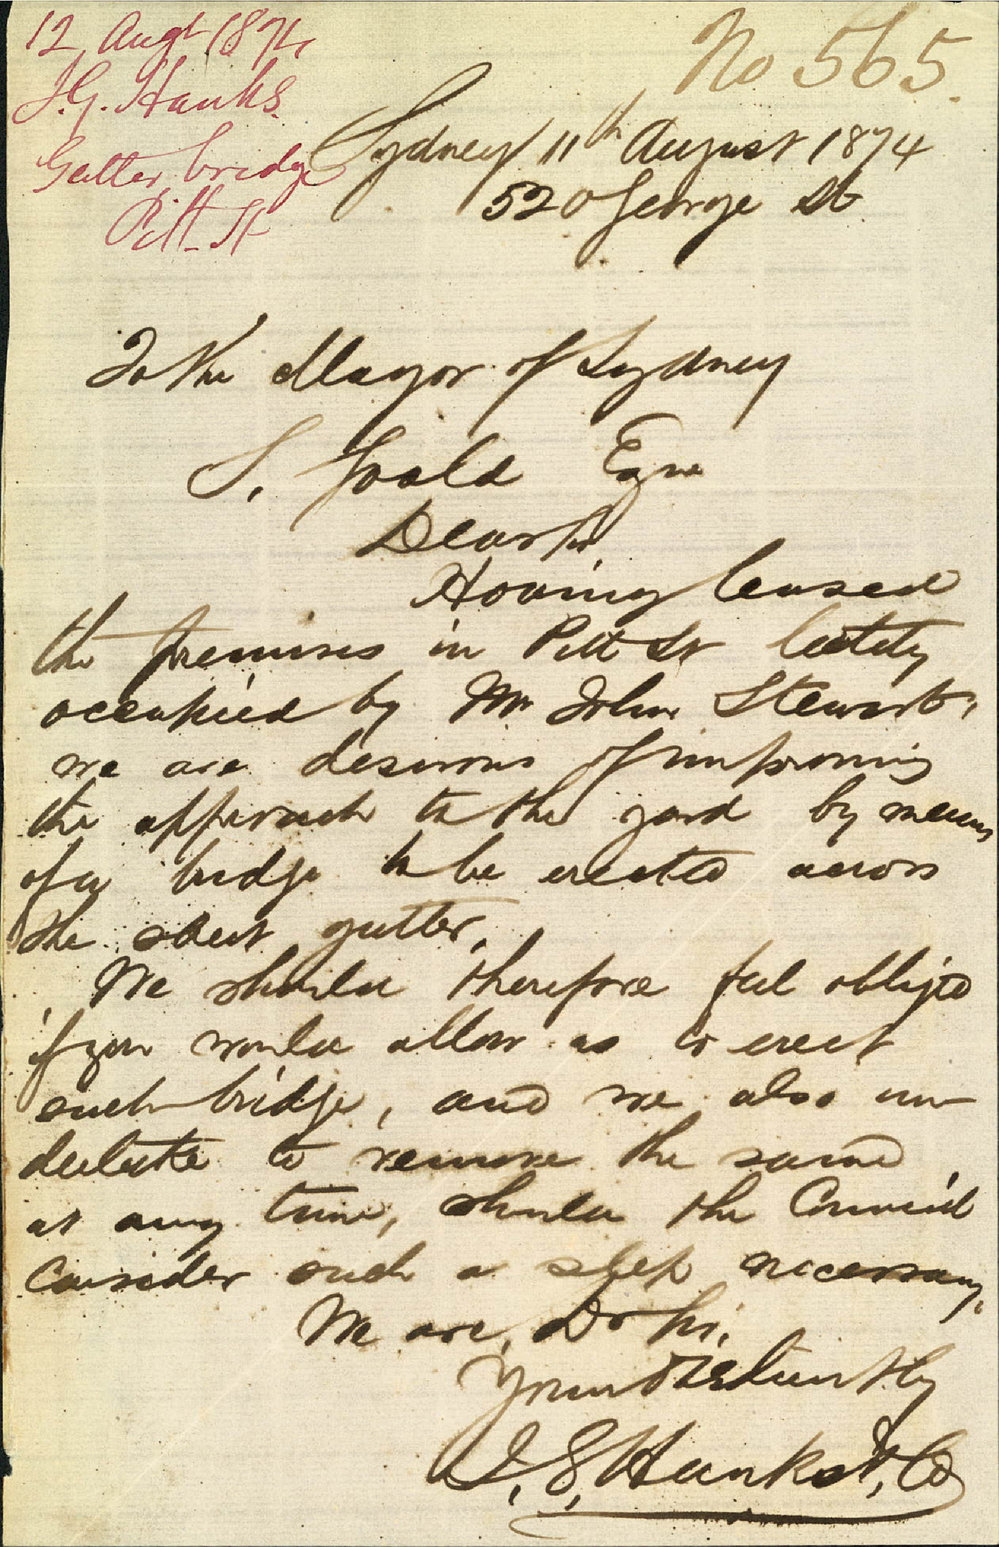 12 Augt 1874
J.G. Hanks.
Gutter bridge
Pitt St
No 565.
Sydney 11th August 1874
520 George St.
To the Mayor of Sydney
S. Goold Esqre
Dear Sir
Having leased
the premises in Pitt St lately
occupied by Mr John Stewart,
we are desirous of improving
the approach to the yard by means
of a bridge to be erected across
the street gutter.
We should therefore feel obliged
if you would allow us to erect
such bridge, and we also un-
dertake to remove the same
at any time, should the Council
consider such a step necessary.
We are, Dr Sir,
Your obediently
J. G. Hanks & Co